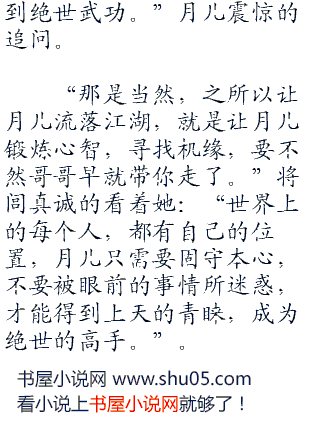 到绝世武功。”月儿震惊的
追问。
“那是当然，之所以让
月儿流落江湖，就是让月儿
锻炼心智，寻找机缘，要不
然哥哥早就带你走了。”将
闾真诚的看着她：“世界上
的每个人，都有自己的位
置，月儿只需要固守本心，
不要被眼前的事情所迷惑，
才能得到上天的青睐，成为
绝世的高手。”。
书屋小说网 www.shu05.com
看小说上书屋小说网就够了！